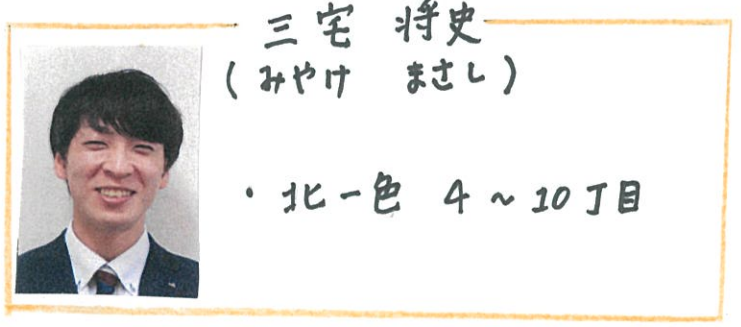 三宅 将史
(みやけ まさし)
・北一色 4～10丁目